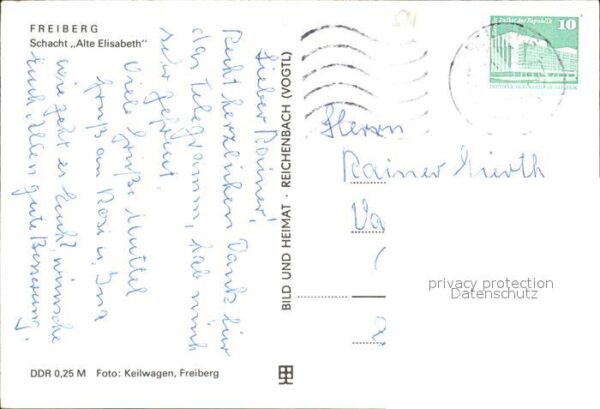 FREIBERG
Schacht „Alte Elisabeth"
Lieber Rainer!
Recht herzlichen Dank für
das Telegramm, hab mich
sehr gefreut.
Viele Grüße Muttel
Gruß an Rosi u. Ina
wie geht es Euch, wünsche
Euch Allen gute Besserung.
DDR 0,25 M Foto: Keilwagen, Freiberg
BILD UND HEIMAT · REICHENBACH (VOGTL)
10
Palast der Republik
Herrn
Rainer
Va
privacy protection
Datenschutz